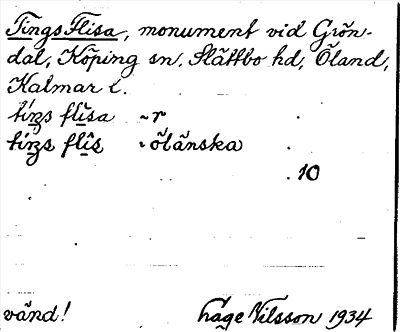 Tings Flisa, monument vid Grön-
dal, Köping sn, Slättbo hd, Öland,
Kalmar l.
tíŋs flìsa -r
tíŋs flîs · ölänska
10
vänd! Håge Nilsson 1934